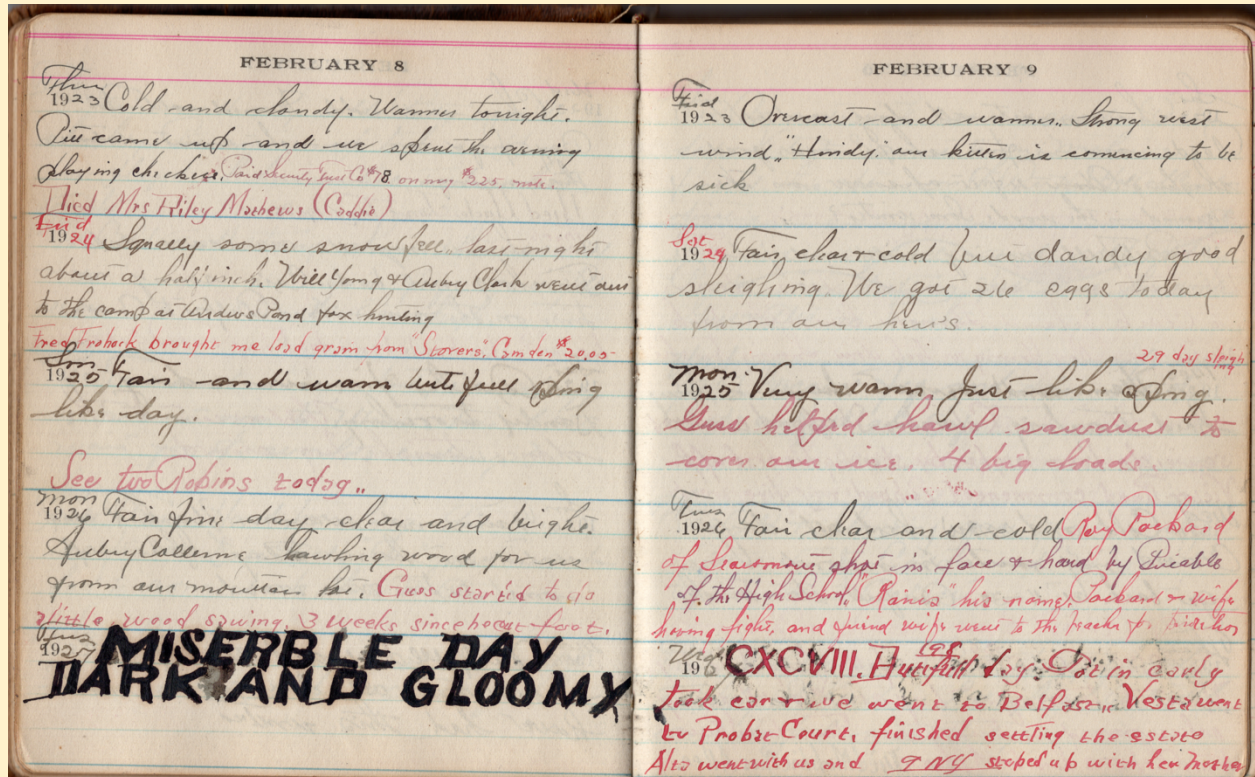 FEBRUARY 8
Thur
1923 Cold and cloudy. Warmer tonight.
came up and we spent the evening
playing checkers. Paid Security Trust Co $78. on my $225. note.
Died Mrs Riley Mathews (Caddie)
Frid
1924 Squally some snow fell, last night
about a half inch. Will Young & Aubry Clark went out
to the camp at Andrews Pond fox hunting
Fred Frohock brought me load grain from "Stovers", Camden $20.05
Sun
1925 Fair and warm butifull Spring
like day.
See two Robins today..
Mon
1926 Fair fine day clear and bright.
Aubry hawling wood for us
from our mountan lot. Guss started to do
alittle wood sawing. 3 weeks since he cut foot.
Tues
1927 MISERBLE DAY
DARK AND GLOOMY
FEBRUARY 9
Frid
1923 Overcast and warmer.. Strong west
wind, "Hindy" our kitten is comencing to be
sick
Sat
1924 Fair, clear & cold but dandy good
sleighing. We got 26 eggs today
from our hen's.
29 day sleigh
ing
Mon.
1925 Very warm Just like Spring.
Guss helped hawl sawdust to
cover our ice. 4 big loads.
Tues
1926 Fair clear and cold Roy Packard
of Searsmont shot in face & hand by
of the High School, his name, Packard & wife
having fight, and wife went to the teacher for
Wed
192 CXCVIII. 198 Butifull day. in early
took car & we went to Belfast.. Vesta went
to Probat Court, finished settling the estate
Alta went with us and stoped up with her mother